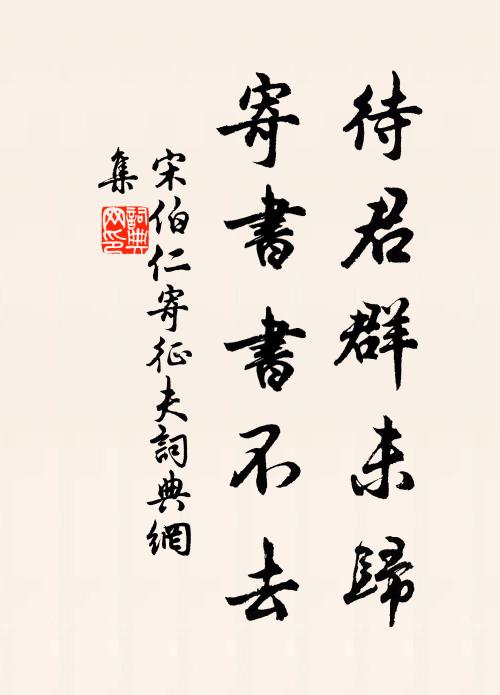 待君群未歸
寄書書不去
宋伯仁寄征夫詞典網
集
詞典網印